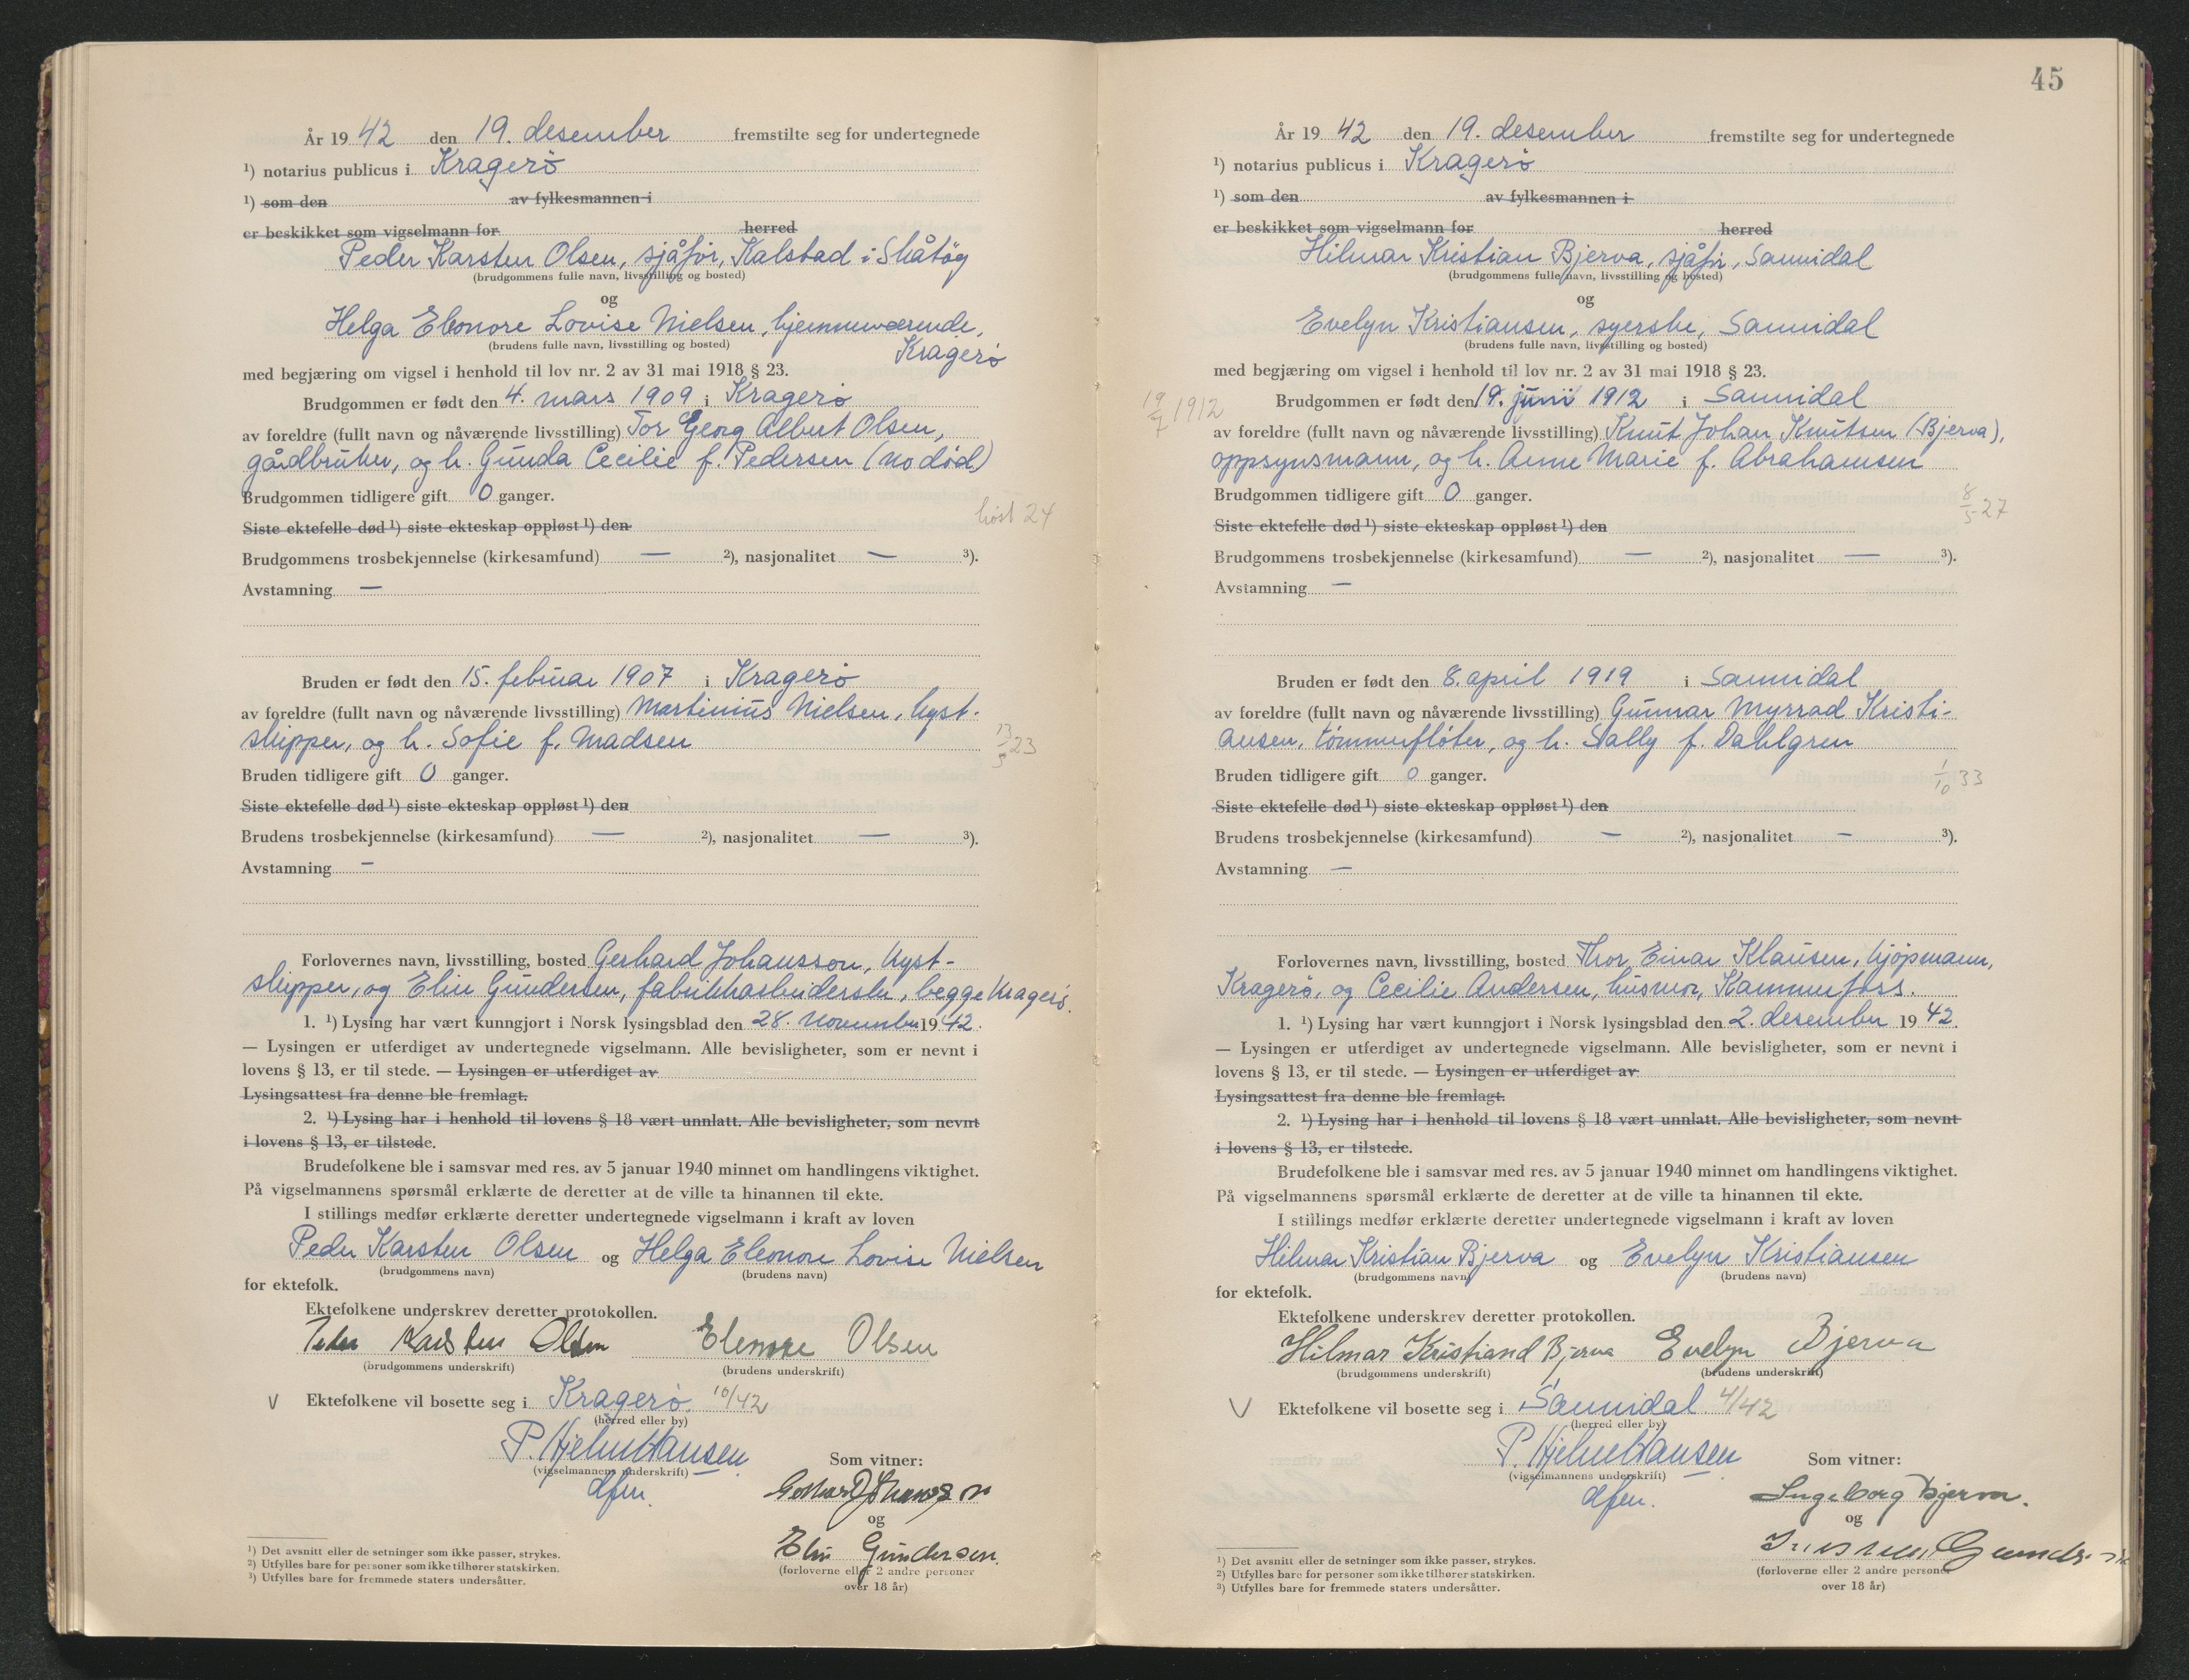 År 19 42 den 19. desember fremstilte seg for undertegnede
¹) notarius publicus i Kragerø
¹) som den av fylkesmannen i
er beskikket som vigselmann for herred
Peder Karsten Olsen, sjåfør, Kalstad i Skåtøy
(brudgommens fulle navn, livsstilling og bosted)
og
Helga Eleonore Lovise Nielsen, hjemmeværende,
(brudens fulle navn, livsstilling og bosted)
Kragerø
med begjæring om vigsel i henhold til lov nr. 2 av 31 mai 1918 § 23.
Brudgommen er født den 4. mars 1909 i Kragerø
av foreldre (fullt navn og nåværende livsstilling) Tor Georg Albert Olsen,
gårdbruker, og h. Gunda Cecilie f. Pedersen (no død)
Brudgommen tidligere gift 0 ganger.
høst 24
Siste ektefelle død ¹) siste ekteskap oppløst ¹) den
Brudgommens trosbekjennelse (kirkesamfund) — ²), nasjonalitet — ³).
Avstamning —
Bruden er født den 15. februar 1907 i Kragerø
av foreldre (fullt navn og nåværende livsstilling) Martinius Nielsen, kyst-
skipper, og h. Sofie f. Madsen
13/5 23
Bruden tidligere gift 0 ganger.
Siste ektefelle død ¹) siste ekteskap oppløst ¹) den
Brudens trosbekjennelse (kirkesamfund) — ²), nasjonalitet — ³).
Avstamning —
Forlovernes navn, livsstilling, bosted Gerhard Johansson, kyst-
skipper, og Elin Gundersen, fabrikkarbeiderske, begge Kragerø.
1. ¹) Lysing har vært kunngjort i Norsk lysingsblad den 28. november 1942.
— Lysingen er utferdiget av undertegnede vigselmann. Alle bevisligheter, som er nevnt i
lovens § 13, er til stede. — Lysingen er utferdiget av
Lysingsattest fra denne ble fremlagt.
2. ¹) Lysing har i henhold til lovens § 18 vært unnlatt. Alle bevisligheter, som nevnt
i lovens § 13, er tilstede.
Brudefolkene ble i samsvar med res. av 5 januar 1940 minnet om handlingens viktighet.
På vigselmannens spørsmål erklærte de deretter at de ville ta hinannen til ekte.
I stillings medfør erklærte deretter undertegnede vigselmann i kraft av loven
Peder Karsten Olsen og Helga Eleonore Lovise Nielsen
(brudgommens navn) (brudens navn)
for ektefolk.
Ektefolkene underskrev deretter protokollen.
Peder Karsten Olsen Elenore Olsen
(brudgommens underskrift) (brudens underskrift)
V Ektefolkene vil bosette seg i Kragerø. 10/42
(herred eller by)
P. Hjelm Hansen
(vigselmannens underskrift)
dfm.
Som vitner:
og
Elin Gundersen.
(forloverne eller 2 andre personer
over 18 år)
¹) Det avsnitt eller de setninger som ikke passer, strykes.
²) Utfylles bare for personer som ikke tilhører statskirken.
³) Utfylles bare for fremmede staters undersåtter.
45
År 19 42 den 19. desember fremstilte seg for undertegnede
¹) notarius publicus i Kragerø
¹) som den av fylkesmannen i
er beskikket som vigselmann for herred
Hilmar Kristian Bjerva, sjåfør, Sannidal
(brudgommens fulle navn, livsstilling og bosted)
og
Evelyn Kristiansen, syerske, Sannidal
(brudens fulle navn, livsstilling og bosted)
med begjæring om vigsel i henhold til lov nr. 2 av 31 mai 1918 § 23.
19/7 1912
Brudgommen er født den 19. juni 1912 i Sannidal
av foreldre (fullt navn og nåværende livsstilling) Knut Johan Knutsen (Bjerva),
oppsynsmann, og h. Anne Marie f. Abrahamsen
Brudgommen tidligere gift 0 ganger.
8/5 27
Siste ektefelle død ¹) siste ekteskap oppløst ¹) den
Brudgommens trosbekjennelse (kirkesamfund) — ²), nasjonalitet — ³).
Avstamning —
Bruden er født den 8. april 1919 i Sannidal
av foreldre (fullt navn og nåværende livsstilling) Gunnar Myrrad Kristi-
ansen, tømmerfløter, og h. Sally f. Dahlgren
Bruden tidligere gift 0 ganger.
1/10 33
Siste ektefelle død ¹) siste ekteskap oppløst ¹) den
Brudens trosbekjennelse (kirkesamfund) — ²), nasjonalitet — ³).
Avstamning —
Forlovernes navn, livsstilling, bosted Thor Einar Klausen, kjøpmann,
Kragerø, og Cecilie Andersen, husmor, Kammerfoss.
1. ¹) Lysing har vært kunngjort i Norsk lysingsblad den 2. desember 19 42.
— Lysingen er utferdiget av undertegnede vigselmann. Alle bevisligheter, som er nevnt i
lovens § 13, er til stede. — Lysingen er utferdiget av
Lysingsattest fra denne ble fremlagt.
2. ¹) Lysing har i henhold til lovens § 18 vært unnlatt. Alle bevisligheter, som nevnt
i lovens § 13, er tilstede.
Brudefolkene ble i samsvar med res. av 5 januar 1940 minnet om handlingens viktighet.
På vigselmannens spørsmål erklærte de deretter at de ville ta hinannen til ekte.
I stillings medfør erklærte deretter undertegnede vigselmann i kraft av loven
Hilmar Kristian Bjerva og Evelyn Kristiansen
(brudgommens navn) (brudens navn)
for ektefolk.
Ektefolkene underskrev deretter protokollen.
Hilmar Kristiand Bjerva Evelyn Bjerva
(brudgommens underskrift) (brudens underskrift)
V Ektefolkene vil bosette seg i Sannidal 4/42
(herred eller by)
P. Hjelm Hansen
(vigselmannens underskrift)
dfm.
Som vitner:
Ingeborg Bjerva.
og
(forloverne eller 2 andre personer
over 18 år)
¹) Det avsnitt eller de setninger som ikke passer, strykes.
²) Utfylles bare for personer som ikke tilhører statskirken.
³) Utfylles bare for fremmede staters undersåtter.